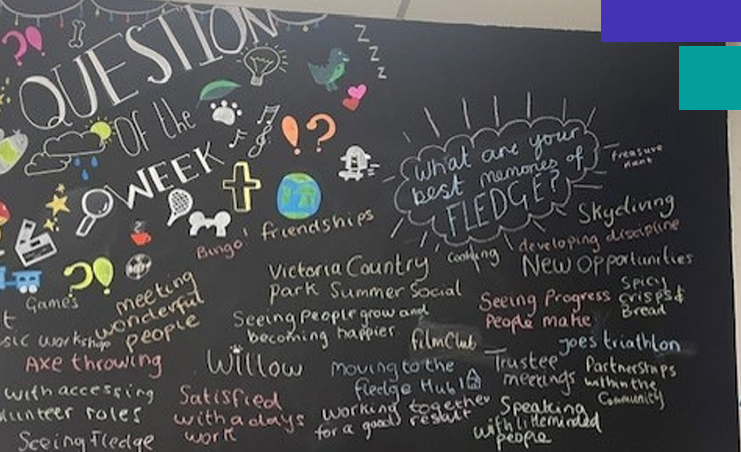 QUESTION
OF the
WEEK
Z
Z
Z
What are your
best memories of
FLEDGE?
treasure
hunt
Skydiving
developing discipline
New opportunities
Cooking
friendships
Bingo!
Victoria Country
Park Summer Social
Seeing Progress
People make
Spicy
crisps &
Bread
Games
meeting
wonderful
people
Seeing People grow and
becoming happier
film Club
joes triathlon
Axe throwing
Willow
Moving to the
fledge Hub!
Trustee
meetings
Partnerships
within the
Community
with accessing
roles
Satisfied
with a days
work
working together
for a good result
Speaking
with likeminded
people
Seeing Fledge